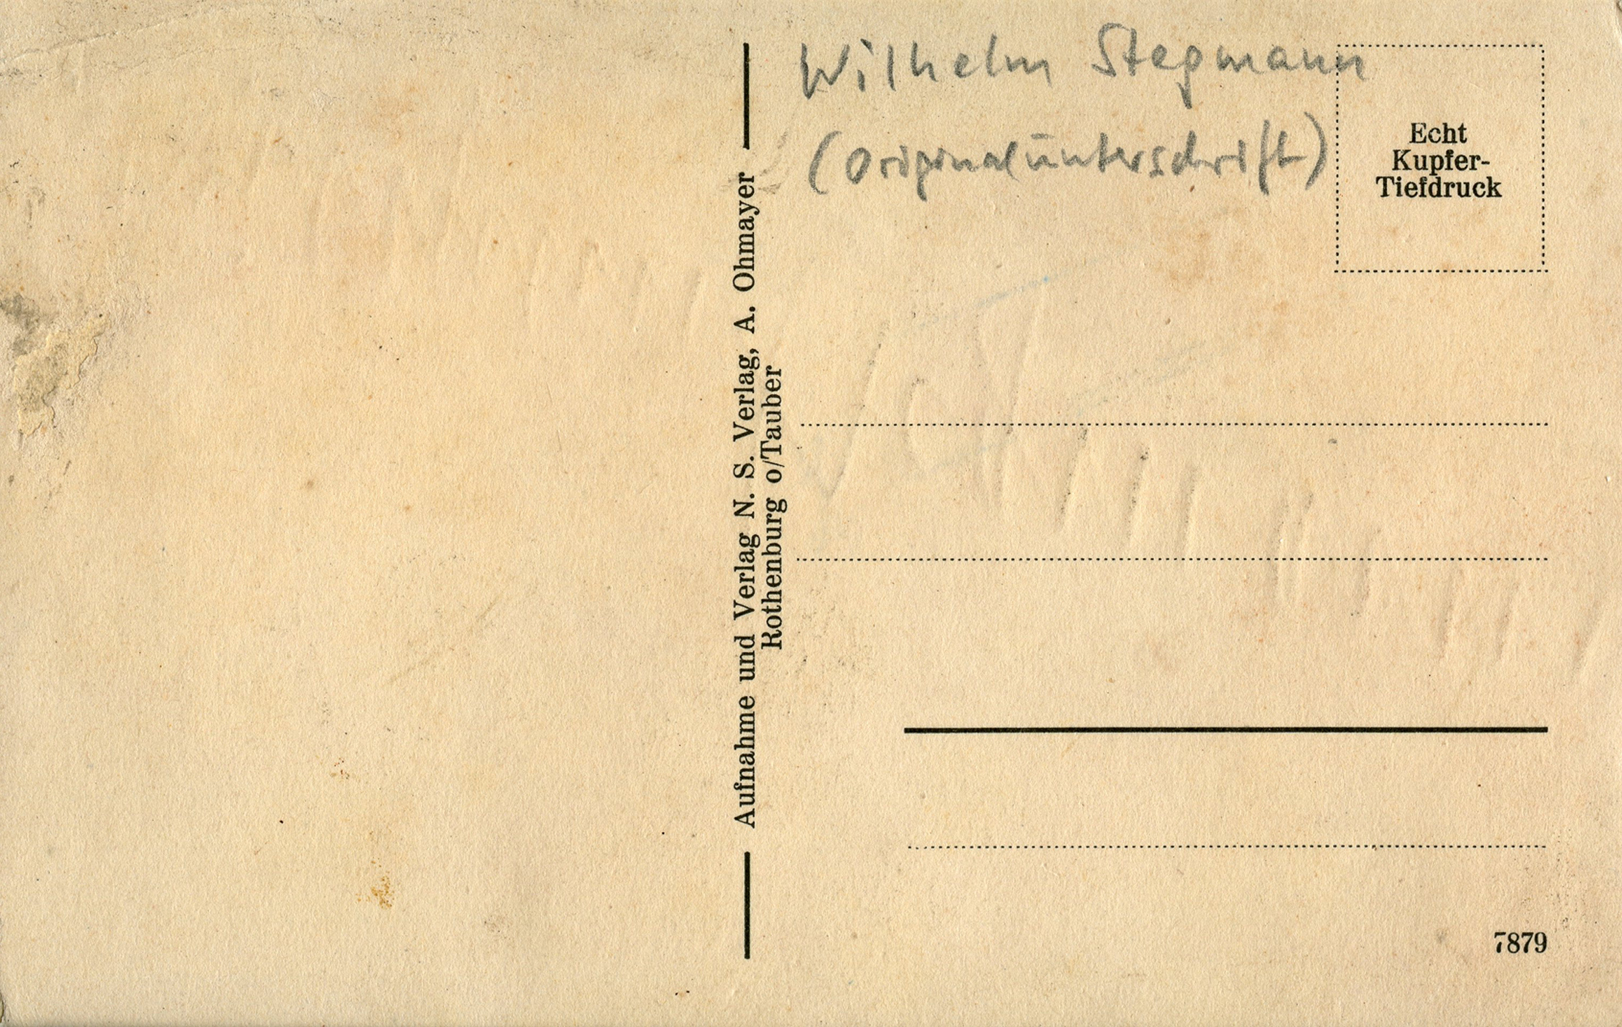 Wilhelm Stegmann
(Originalunterschrift)
Echt
Kupfer-
Tiefdruck
Aufnahme und Verlag N. S. Verlag, A. Ohmayer
Rothenburg o/Tauber
7879